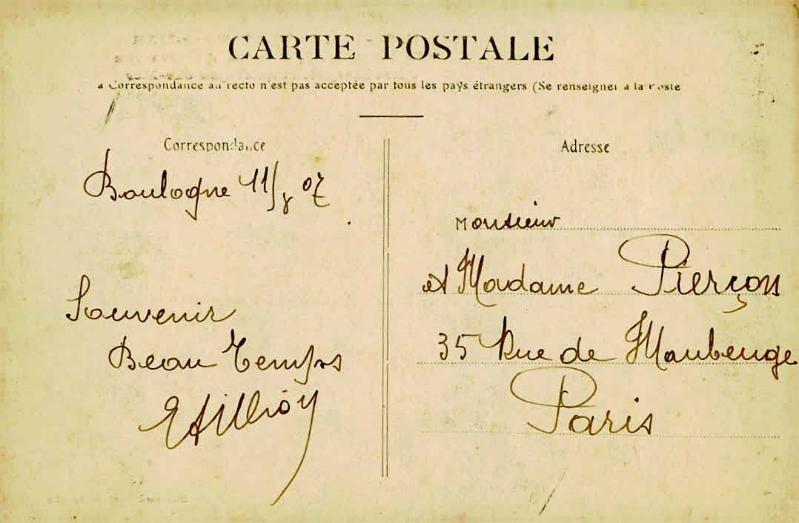 CARTE POSTALE
a Correspondance au recto n'est pas acceptée par tous les pays étrangers (Se renseigner à la Poste
Correspondance
Adresse
Boulogne 11/8 07
Souvenir
Beau Temps
Monsieur
et Madame Pierçon
35 Rue de Maubeuge
Paris